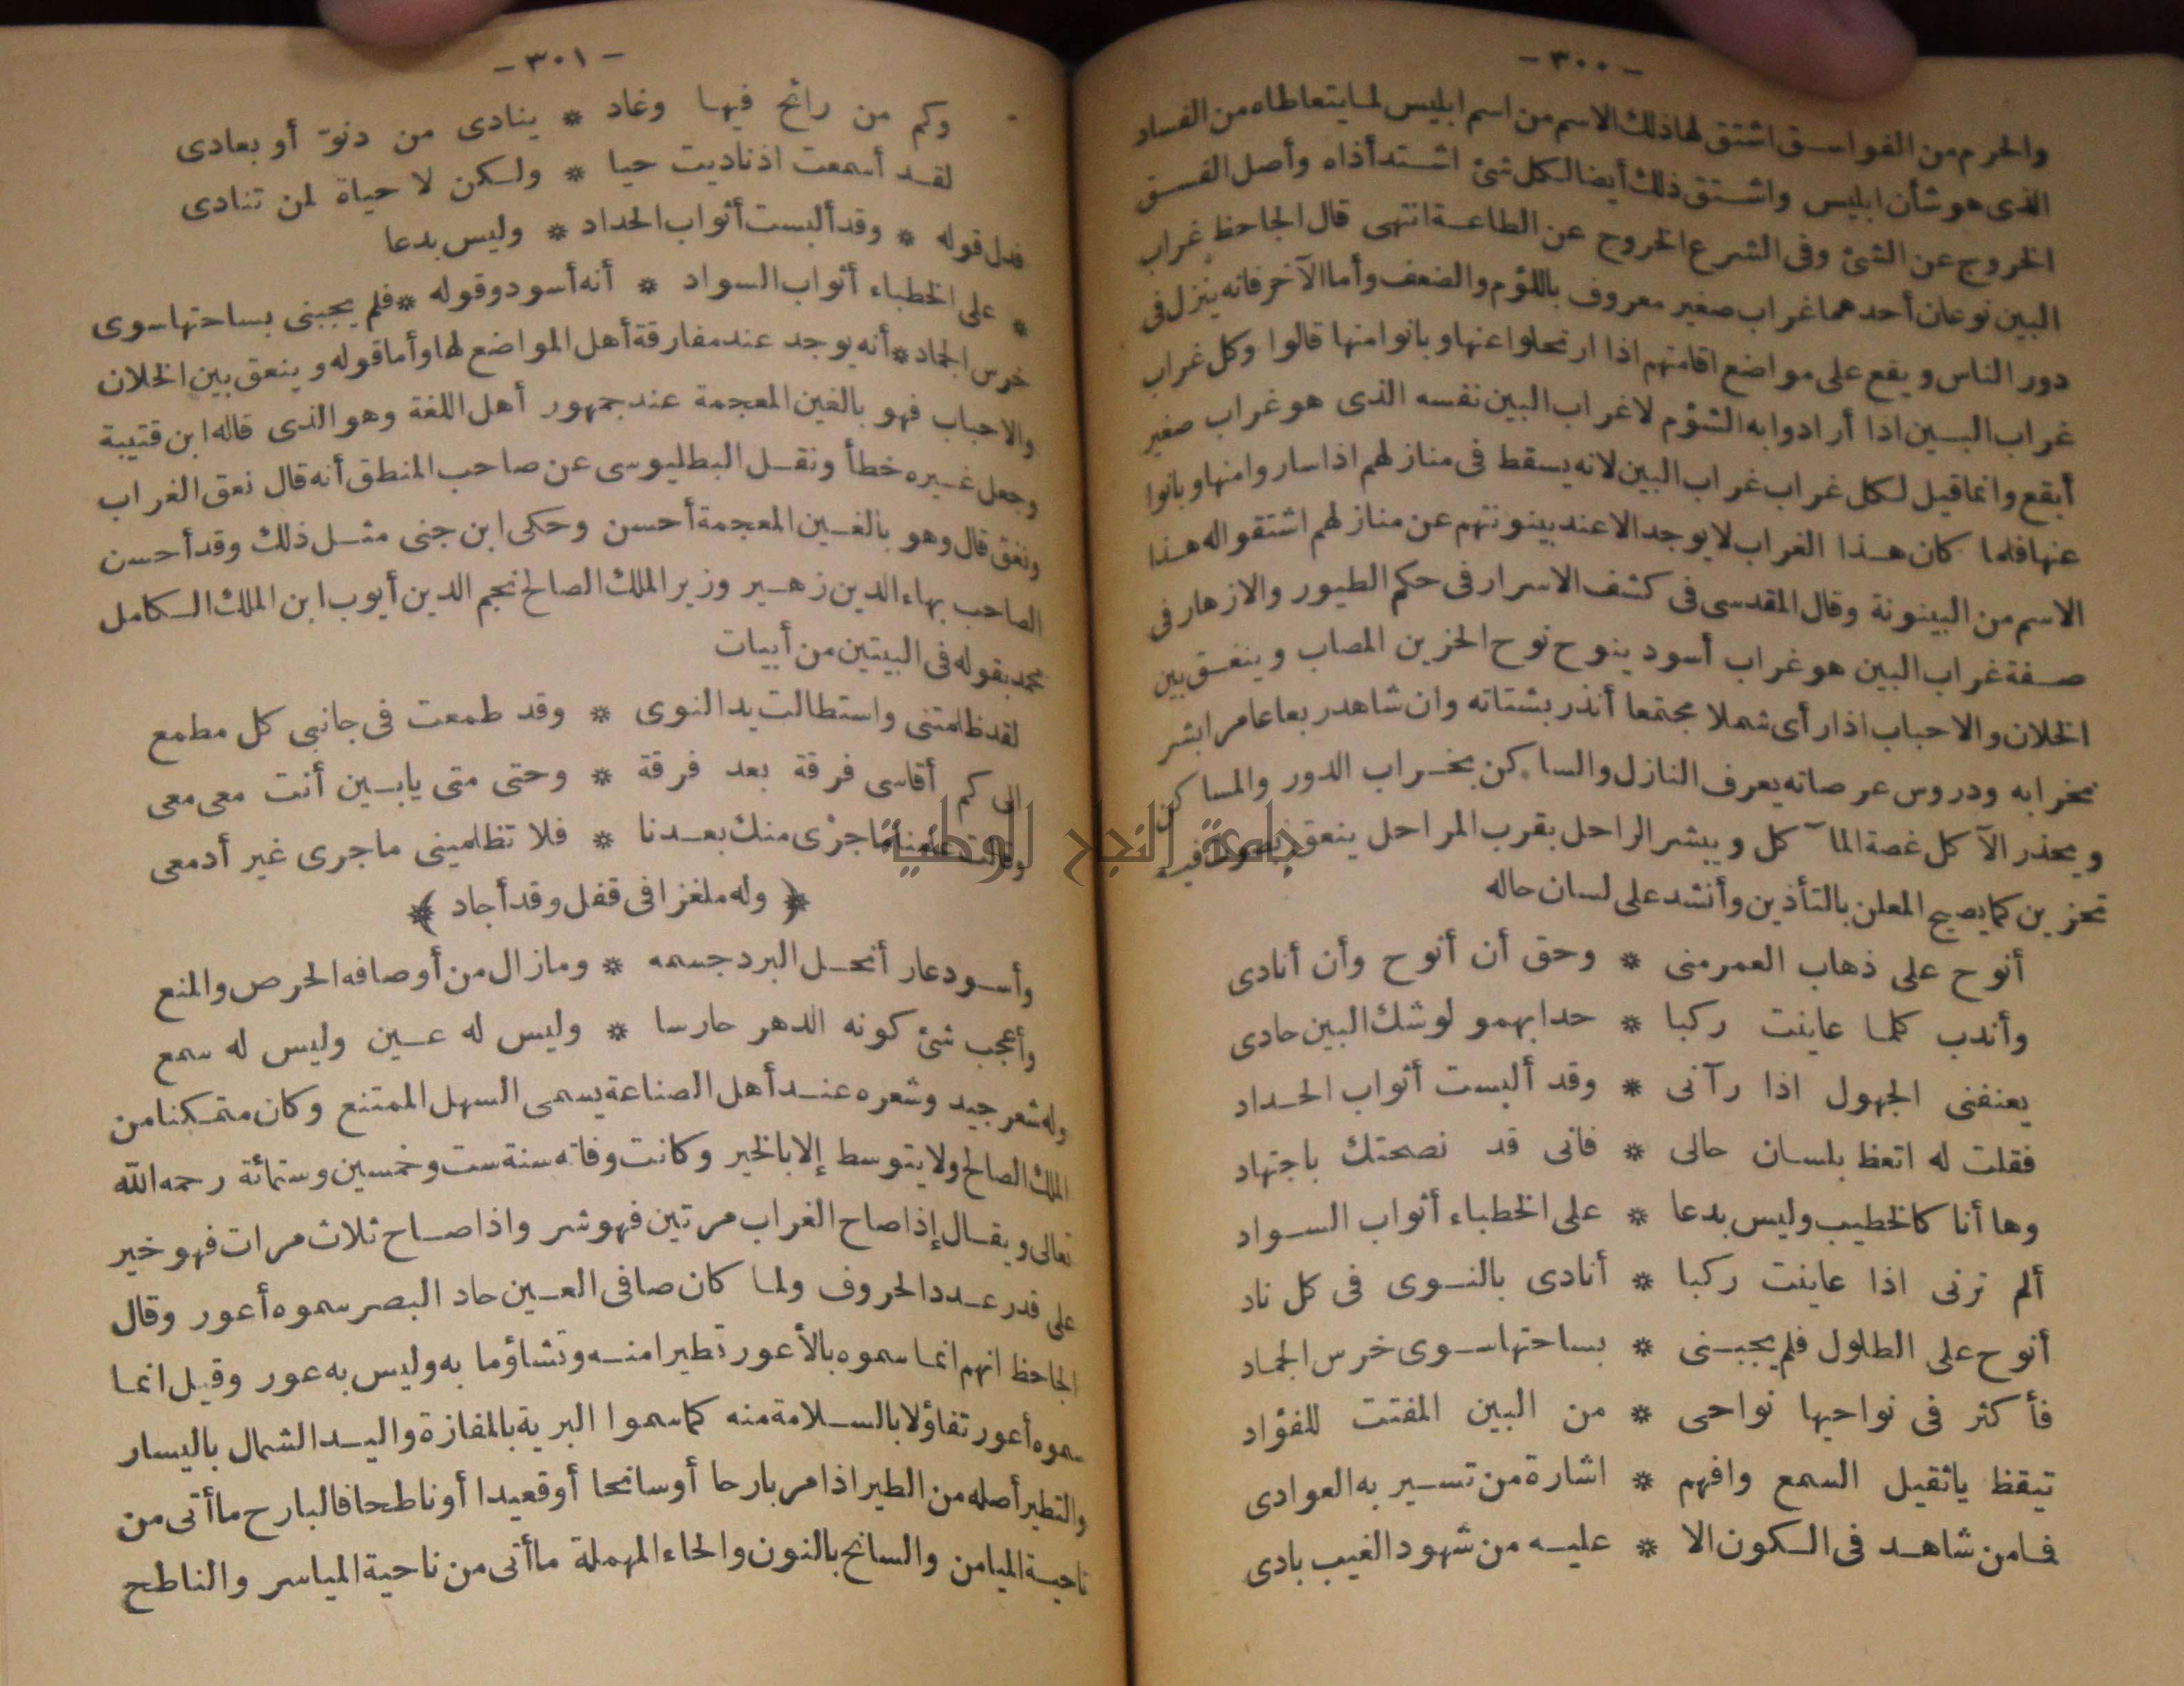 - ٣٠٠ -
والحرم من الفواسق اشتق لها ذلك الاسم من اسم ابليس لما يتعاطاه من الفساد
الذى هو شأن ابليس واشتق ذلك أيضا لكل شئ اشتد أذاه وأصل الفسق
الخروج عن الشئ وفى الشرع الخروج عن الطاعة انتهى قال الجاحظ غراب
البين نوعان أحدهما غراب صغير معروف باللؤم والضعف وأما الآخر فانه ينزل فى
دور الناس ويقع على مواضع اقامتهم اذا ارتحلوا عنها وبانوا منها قالوا وكل غراب
غراب البين اذا أرادوا به الشؤم لا غراب البين نفسه الذى هو غراب صغير
أبقع وانما قيل لكل غراب غراب البين لانه يسقط فى منازلهم اذا ساروا منها وبانوا
عنها فلما كان هذا الغراب لا يوجد الا عند بينونتهم عن منازلهم اشتقوا له هذا
الاسم من البينونة وقال المقدسى فى كشف الاسرار فى حكم الطيور والازهار فى
صفة غراب البين هو غراب أسود ينوح نوح الحزين المصاب وينغق بين
الخلان والاحباب اذا رأى شملا مجتمعا أنذر بشتاته وان شاهد ربعا عامرا بشر
بخرابه ودروس عرصاته يعرف النازل والساكن بخراب الدور والمساكن
ويحذر الآكل غصة المآكل ويبشر الراحل بقرب المراحل ينعق بصوت فيه
تحزين كما يصيح المعلن بالتأذين وأنشد على لسان حاله
أنوح على ذهاب العمر منى * وحق أن أنوح وأن أنادى
وأندب كلما عاينت ركبا * حدا بهمو لوشك البين حادى
يعنفنى الجهول اذا رآنى * وقد ألبست أثواب الحداد
فقلت له اتعظ بلسان حالى * فانى قد نصحتك باجتهاد
وها أنا كالخطيب وليس بدعا * على الخطباء أثواب السواد
ألم ترنى اذا عاينت ركبا * أنادى بالنوى فى كل ناد
أنوح على الطلول فلم يجبنى * بساحتها سوى خرس الجماد
فأكثر فى نواحيها نواحى * من البين المفتت للفؤاد
تيقظ ياثقيل السمع وافهم * اشارة من تسير به العوادى
فما من شاهد فى الكون الا * عليه من شهود الغيب بادى
- ٣٠١ -
وكم من رائح فيها وغاد * ينادى من دنوّ أو بعادى
لقد أسمعت اذ ناديت حيا * ولكن لا حياة لمن تنادى
فدل قوله * وقد ألبست أثواب الحداد * وليس بدعا
* على الخطباء أثواب السواد * أنه أسود وقوله * فلم يجبنى بساحتها سوى
خرس الجماد * أنه يوجد عند مفارقة أهل المواضع لها وأما قوله وينعق بين الخلان
والاحباب فهو بالغين المعجمة عند جمهور أهل اللغة وهو الذى قاله ابن قتيبة
وجعل غيره خطأ ونقل البطليوسى عن صاحب المنطق أنه قال نعق الغراب
ونغق قال وهو بالغين المعجمة أحسن وحكى ابن جنى مثل ذلك وقد أحسن
الصاحب بهاء الدين زهير وزير الملك الصالح نجم الدين أيوب ابن الملك الكامل
محمد بقوله فى البيتين من أبيات
لقد ظلمتنى واستطالت يد النوى * وقد طمعت فى جانبى كل مطمع
الى كم أقاسى فرقة بعد فرقة * وحتى متى يابين أنت معى معى
وقالت علمنا ما جرى منك بعدنا * فلا تظلمينى ما جرى غير أدمعى
﴿ وله ملغزا فى قفل وقد أجاد ﴾
وأسود عار أنحل البرد جسمه * ومازال من أوصافه الحرص والمنع
وأعجب شئ كونه الدهر حارسا * وليس له عين وليس له سمع
وله شعر جيد وشعره عند أهل الصناعة يسمى السهل الممتنع وكان متمكنا من
الملك الصالح ولا يتوسط إلا بالخير وكانت وفاته سنة ست وخمسين وستمائة رحمه الله
تعالى ويقال إذا صاح الغراب مرتين فهو شر واذا صاح ثلاث مرات فهو خير
على قدر عدد الحروف ولما كان صافى العين حاد البصر سموه أعور وقال
الجاحظ انهم انما سموه بالأعور تطيرا منه وتشاؤما به وليس به عور وقيل انما
سموه أعور تفاؤلا بالسلامة منه كما سموا البرية بالمفازة واليد الشمال باليسار
والتطير أصله من الطير اذا مر بارحا أو سانحا أو قعيدا أو ناطحا فالبارح ما أتى من
ناحية الميامن والسانح بالنون والحاء المهملة ما أتى من ناحية المياسر والناطح
جامعة النجاح الوطنية